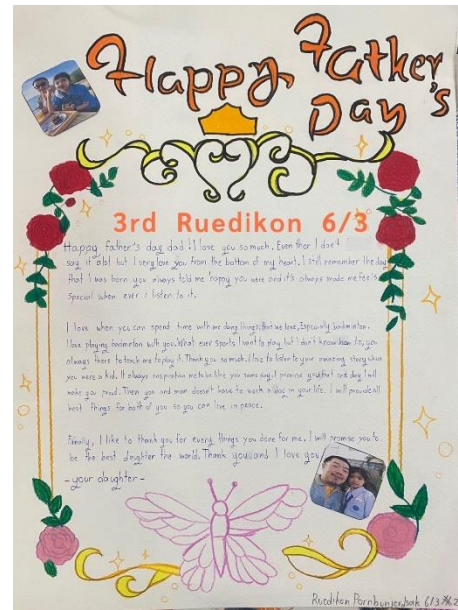 Happy Father's
Day
3rd Ruedikon 6/3
Happy father's day dad! I love you so much. Even ther I don't
say it a lot but I very love you from the bottom of my heart. I still remember the day
that I was born you always told me happy you were and it's always made me feels
special when ever I listen to it.
I love when you can spend time with me doing things that we love, Especially badminton.
I love playing badminton with you. What ever sports I want to play but I don't know how to, you
always there to teach me to play it. Thank you so much. I love to listen to your amazing story when
you were a kid. It always inspiration me to be like you some day. I promise you that one day I will
make you proud. Then you and mom doesn't have to work in your life. I will provide all
best things for both of you so you can live in peace.
Finally, I like to thank you for every things you done for me. I will promise you to
be the best daughter the world. Thank you and I love you
- your daughter -
Ruedikon 6/3